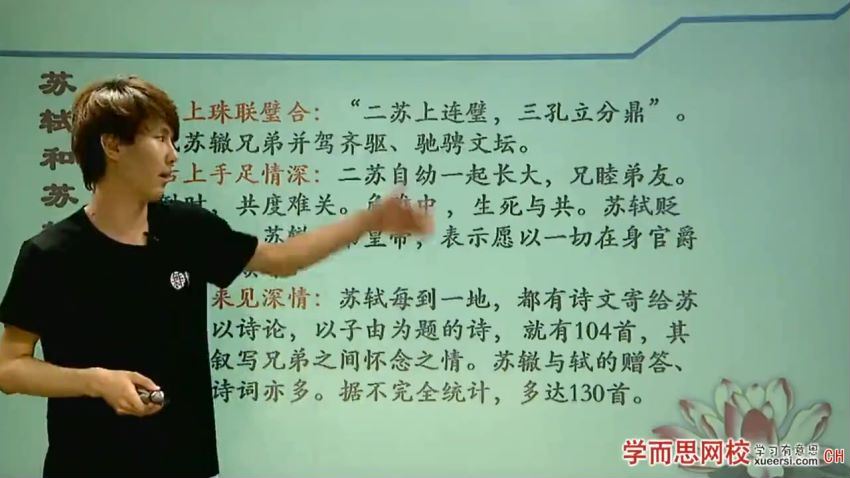 苏轼和苏
上珠联璧合：“二苏上连璧，三孔立分鼎”。
苏辙兄弟并驾齐驱、驰骋文坛。
上手足情深：二苏自幼一起长大，兄睦弟友。
时，共度难关。中，生死与共。苏轼贬
皇帝，表示愿以一切在身官爵
来见深情：苏轼每到一地，都有诗文寄给苏
以诗论，以子由为题的诗，就有104首，其
叙写兄弟之间怀念之情。苏辙与轼的赠答、
诗词亦多。据不完全统计，多达130首。
学而思网校 学习有意思 xueersi.com CH